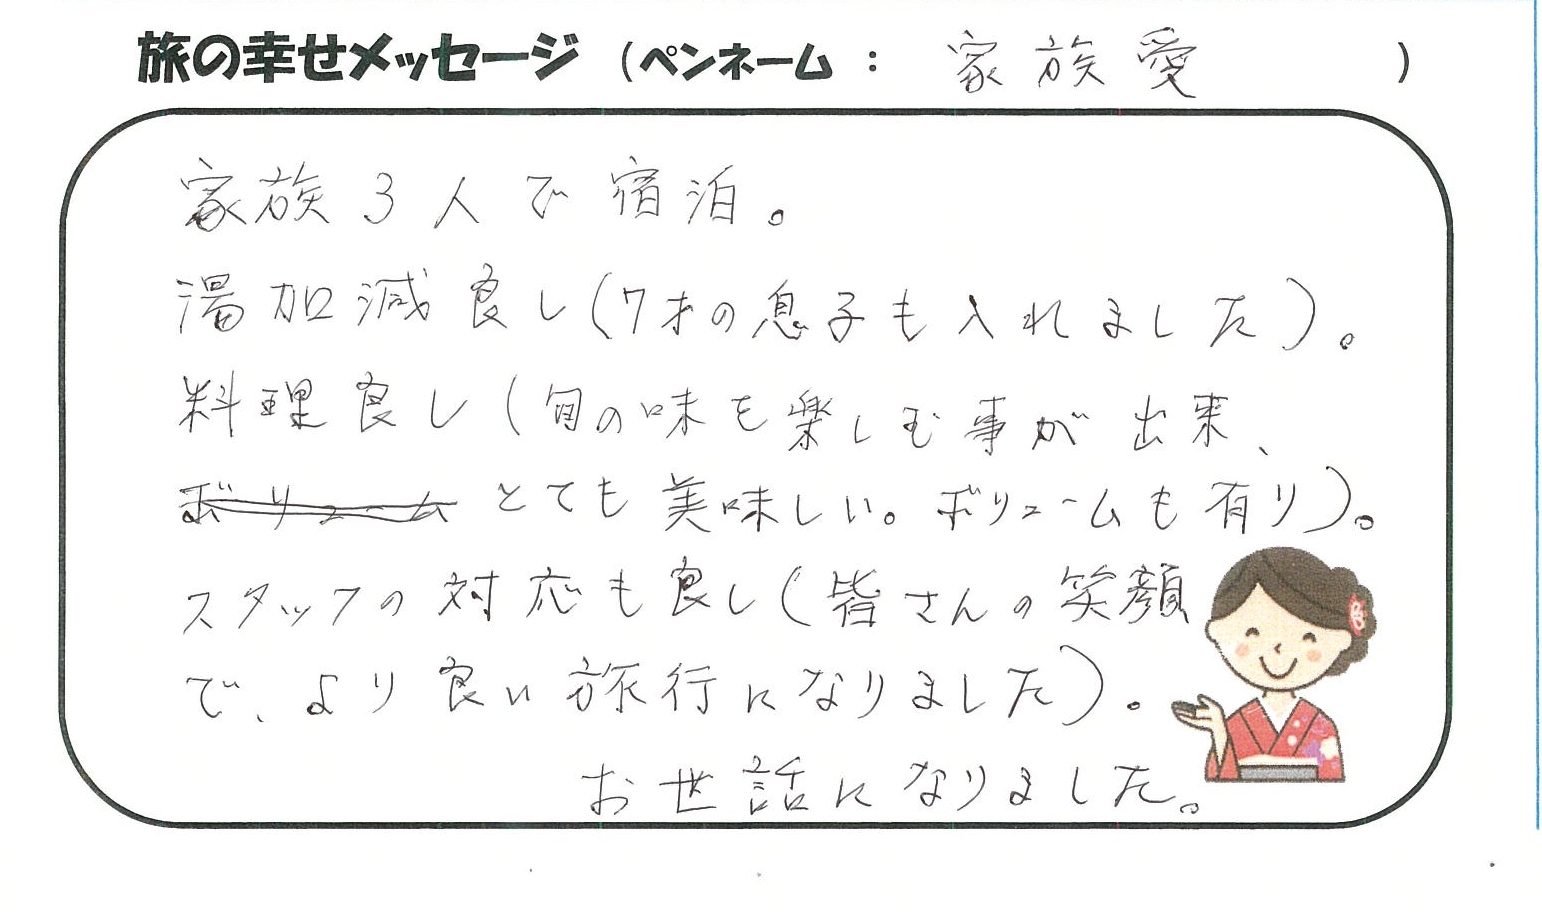 旅の幸せメッセージ（ペンネーム：家族愛）
家族3人で宿泊。
湯加減良し(7才の息子も入れました)。
料理良し(旬の味を楽しむ事が出来、
ボリューム とても美味しい。ボリュームも有り)。
スタッフの対応も良し(皆さんの笑顔
で、より良い旅行になりました)。
お世話になりました。